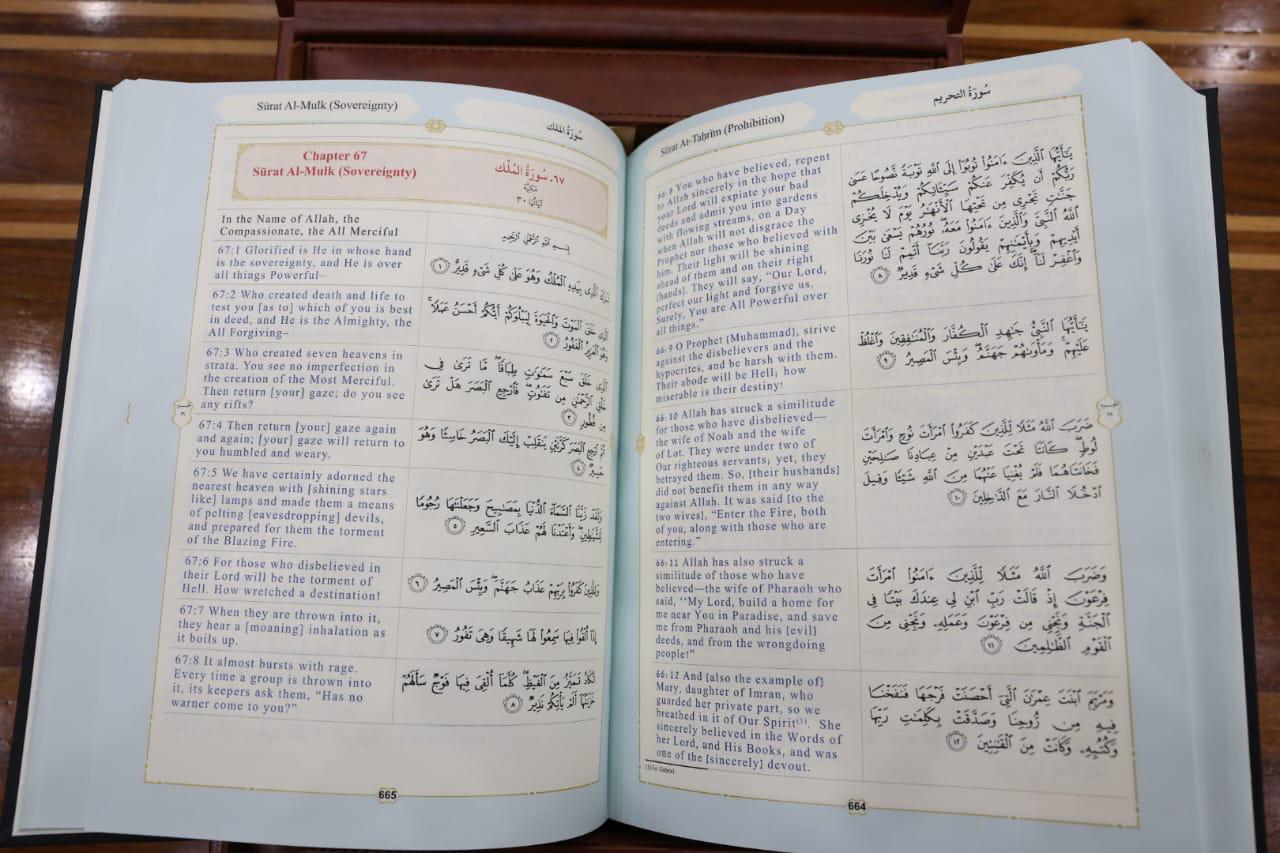 Sūrat At-Taḥrīm (Prohibition)
سُورَةُ التحريم
66:8 You who have believed, repent
to Allah sincerely in the hope that
your Lord will expiate your bad
deeds and admit you into gardens
with flowing streams, on a Day
when Allah will not disgrace the
Prophet nor those who believed with
him. Their light will be shining
ahead of them and on their right
[hands]. They will say, “Our Lord,
perfect our light and forgive us.
Surely, You are All Powerful over
all things.”
يَٰٓأَيُّهَا ٱلَّذِينَ ءَامَنُوا۟ تُوبُوٓا۟ إِلَى ٱللَّهِ تَوْبَةً نَّصُوحًا عَسَىٰ
رَبُّكُمْ أَن يُكَفِّرَ عَنكُمْ سَيِّـَٔاتِكُمْ وَيُدْخِلَكُمْ
جَنَّٰتٍ تَجْرِى مِن تَحْتِهَا ٱلْأَنْهَٰرُ يَوْمَ لَا يُخْزِى
ٱللَّهُ ٱلنَّبِىَّ وَٱلَّذِينَ ءَامَنُوا۟ مَعَهُۥ ۖ نُورُهُمْ يَسْعَىٰ بَيْنَ
أَيْدِيهِمْ وَبِأَيْمَٰنِهِمْ يَقُولُونَ رَبَّنَآ أَتْمِمْ لَنَا نُورَنَا
وَٱغْفِرْ لَنَآ ۖ إِنَّكَ عَلَىٰ كُلِّ شَىْءٍ قَدِيرٌ ٨
66:9 O Prophet [Muhammad], strive
against the disbelievers and the
hypocrites, and be harsh with them.
Their abode will be Hell; how
miserable is their destiny!
يَٰٓأَيُّهَا ٱلنَّبِىُّ جَٰهِدِ ٱلْكُفَّارَ وَٱلْمُنَٰفِقِينَ وَٱغْلُظْ
عَلَيْهِمْ ۚ وَمَأْوَىٰهُمْ جَهَنَّمُ ۖ وَبِئْسَ ٱلْمَصِيرُ ٩
66:10 Allah has struck a similitude
for those who have disbelieved—
the wife of Noah and the wife
of Lot. They were under two of
Our righteous servants; yet, they
betrayed them. So, [their husbands]
did not benefit them in any way
against Allah. It was said [to the
two wives], “Enter the Fire, both
of you, along with those who are
entering.”
ضَرَبَ ٱللَّهُ مَثَلًا لِّلَّذِينَ كَفَرُوا۟ ٱمْرَأَتَ نُوحٍ وَٱمْرَأَتَ
لُوطٍ ۖ كَانَتَا تَحْتَ عَبْدَيْنِ مِنْ عِبَادِنَا صَٰلِحَيْنِ
فَخَانَتَاهُمَا فَلَمْ يُغْنِيَا عَنْهُمَا مِنَ ٱللَّهِ شَيْـًٔا وَقِيلَ
ٱدْخُلَا ٱلنَّارَ مَعَ ٱلدَّٰخِلِينَ ١٠
66:11 Allah has also struck a
similitude of those who have
believed—the wife of Pharaoh who
said, “My Lord, build a home for
me near You in Paradise, and save
me from Pharaoh and his [evil]
deeds, and from the wrongdoing
people!”
وَضَرَبَ ٱللَّهُ مَثَلًا لِّلَّذِينَ ءَامَنُوا۟ ٱمْرَأَتَ
فِرْعَوْنَ إِذْ قَالَتْ رَبِّ ٱبْنِ لِى عِندَكَ بَيْتًا فِى
ٱلْجَنَّةِ وَنَجِّنِى مِن فِرْعَوْنَ وَعَمَلِهِۦ وَنَجِّنِى مِنَ
ٱلْقَوْمِ ٱلظَّٰلِمِينَ ١١
66:12 And [also the example of]
Mary, daughter of Imran, who
guarded her private part, so we
breathed in it of Our Spirit(1). She
sincerely believed in the Words of
her Lord, and His Books, and was
one of the [sincerely] devout.
وَمَرْيَمَ ٱبْنَتَ عِمْرَٰنَ ٱلَّتِىٓ أَحْصَنَتْ فَرْجَهَا فَنَفَخْنَا
فِيهِ مِن رُّوحِنَا وَصَدَّقَتْ بِكَلِمَٰتِ رَبِّهَا
وَكُتُبِهِۦ وَكَانَتْ مِنَ ٱلْقَٰنِتِينَ ١٢
(1) I.e. Gabriel.
664
Sūrat Al-Mulk (Sovereignty)
سُورَةُ المُلك
Chapter 67
Sūrat Al-Mulk (Sovereignty)
٦٧. سُورَةُ المُلْك
مَكِّيَّة
آيَاتُهَا ٣٠
In the Name of Allah, the
Compassionate, the All Merciful
بِسْمِ ٱللَّهِ ٱلرَّحْمَٰنِ ٱلرَّحِيمِ
67:1 Glorified is He in whose hand
is the sovereignty, and He is over
all things Powerful–
تَبَٰرَكَ ٱلَّذِى بِيَدِهِ ٱلْمُلْكُ وَهُوَ عَلَىٰ كُلِّ شَىْءٍ قَدِيرٌ ١
67:2 Who created death and life to
test you [as to] which of you is best
in deed, and He is the Almighty, the
All Forgiving–
ٱلَّذِى خَلَقَ ٱلْمَوْتَ وَٱلْحَيَوٰةَ لِيَبْلُوَكُمْ أَيُّكُمْ أَحْسَنُ عَمَلًا ۚ
وَهُوَ ٱلْعَزِيزُ ٱلْغَفُورُ ٢
67:3 Who created seven heavens in
strata. You see no imperfection in
the creation of the Most Merciful.
Then return [your] gaze; do you see
any rifts?
ٱلَّذِى خَلَقَ سَبْعَ سَمَٰوَٰتٍ طِبَاقًا ۖ مَّا تَرَىٰ فِى
خَلْقِ ٱلرَّحْمَٰنِ مِن تَفَٰوُتٍ ۖ فَٱرْجِعِ ٱلْبَصَرَ هَلْ تَرَىٰ
مِن فُطُورٍ ٣
67:4 Then return [your] gaze again
and again; [your] gaze will return to
you humbled and weary.
ثُمَّ ٱرْجِعِ ٱلْبَصَرَ كَرَّتَيْنِ يَنقَلِبْ إِلَيْكَ ٱلْبَصَرُ خَاسِئًا وَهُوَ
حَسِيرٌ ٤
67:5 We have certainly adorned the
nearest heaven with [shining stars
like] lamps and made them a means
of pelting [eavesdropping] devils,
and prepared for them the torment
of the Blazing Fire.
وَلَقَدْ زَيَّنَّا ٱلسَّمَآءَ ٱلدُّنْيَا بِمَصَٰبِيحَ وَجَعَلْنَٰهَا رُجُومًا
لِّلشَّيَٰطِينِ ۖ وَأَعْتَدْنَا لَهُمْ عَذَابَ ٱلسَّعِيرِ ٥
67:6 For those who disbelieved in
their Lord will be the torment of
Hell. How wretched a destination!
وَلِلَّذِينَ كَفَرُوا۟ بِرَبِّهِمْ عَذَابُ جَهَنَّمَ ۖ وَبِئْسَ ٱلْمَصِيرُ ٦
67:7 When they are thrown into it,
they hear a [moaning] inhalation as
it boils up.
إِذَآ أُلْقُوا۟ فِيهَا سَمِعُوا۟ لَهَا شَهِيقًا وَهِىَ تَفُورُ ٧
67:8 It almost bursts with rage.
Every time a group is thrown into
it, its keepers ask them, “Has no
warner come to you?”
تَكَادُ تَمَيَّزُ مِنَ ٱلْغَيْظِ ۖ كُلَّمَآ أُلْقِىَ فِيهَا فَوْجٌ سَأَلَهُمْ
خَزَنَتُهَآ أَلَمْ يَأْتِكُمْ نَذِيرٌ ٨
665